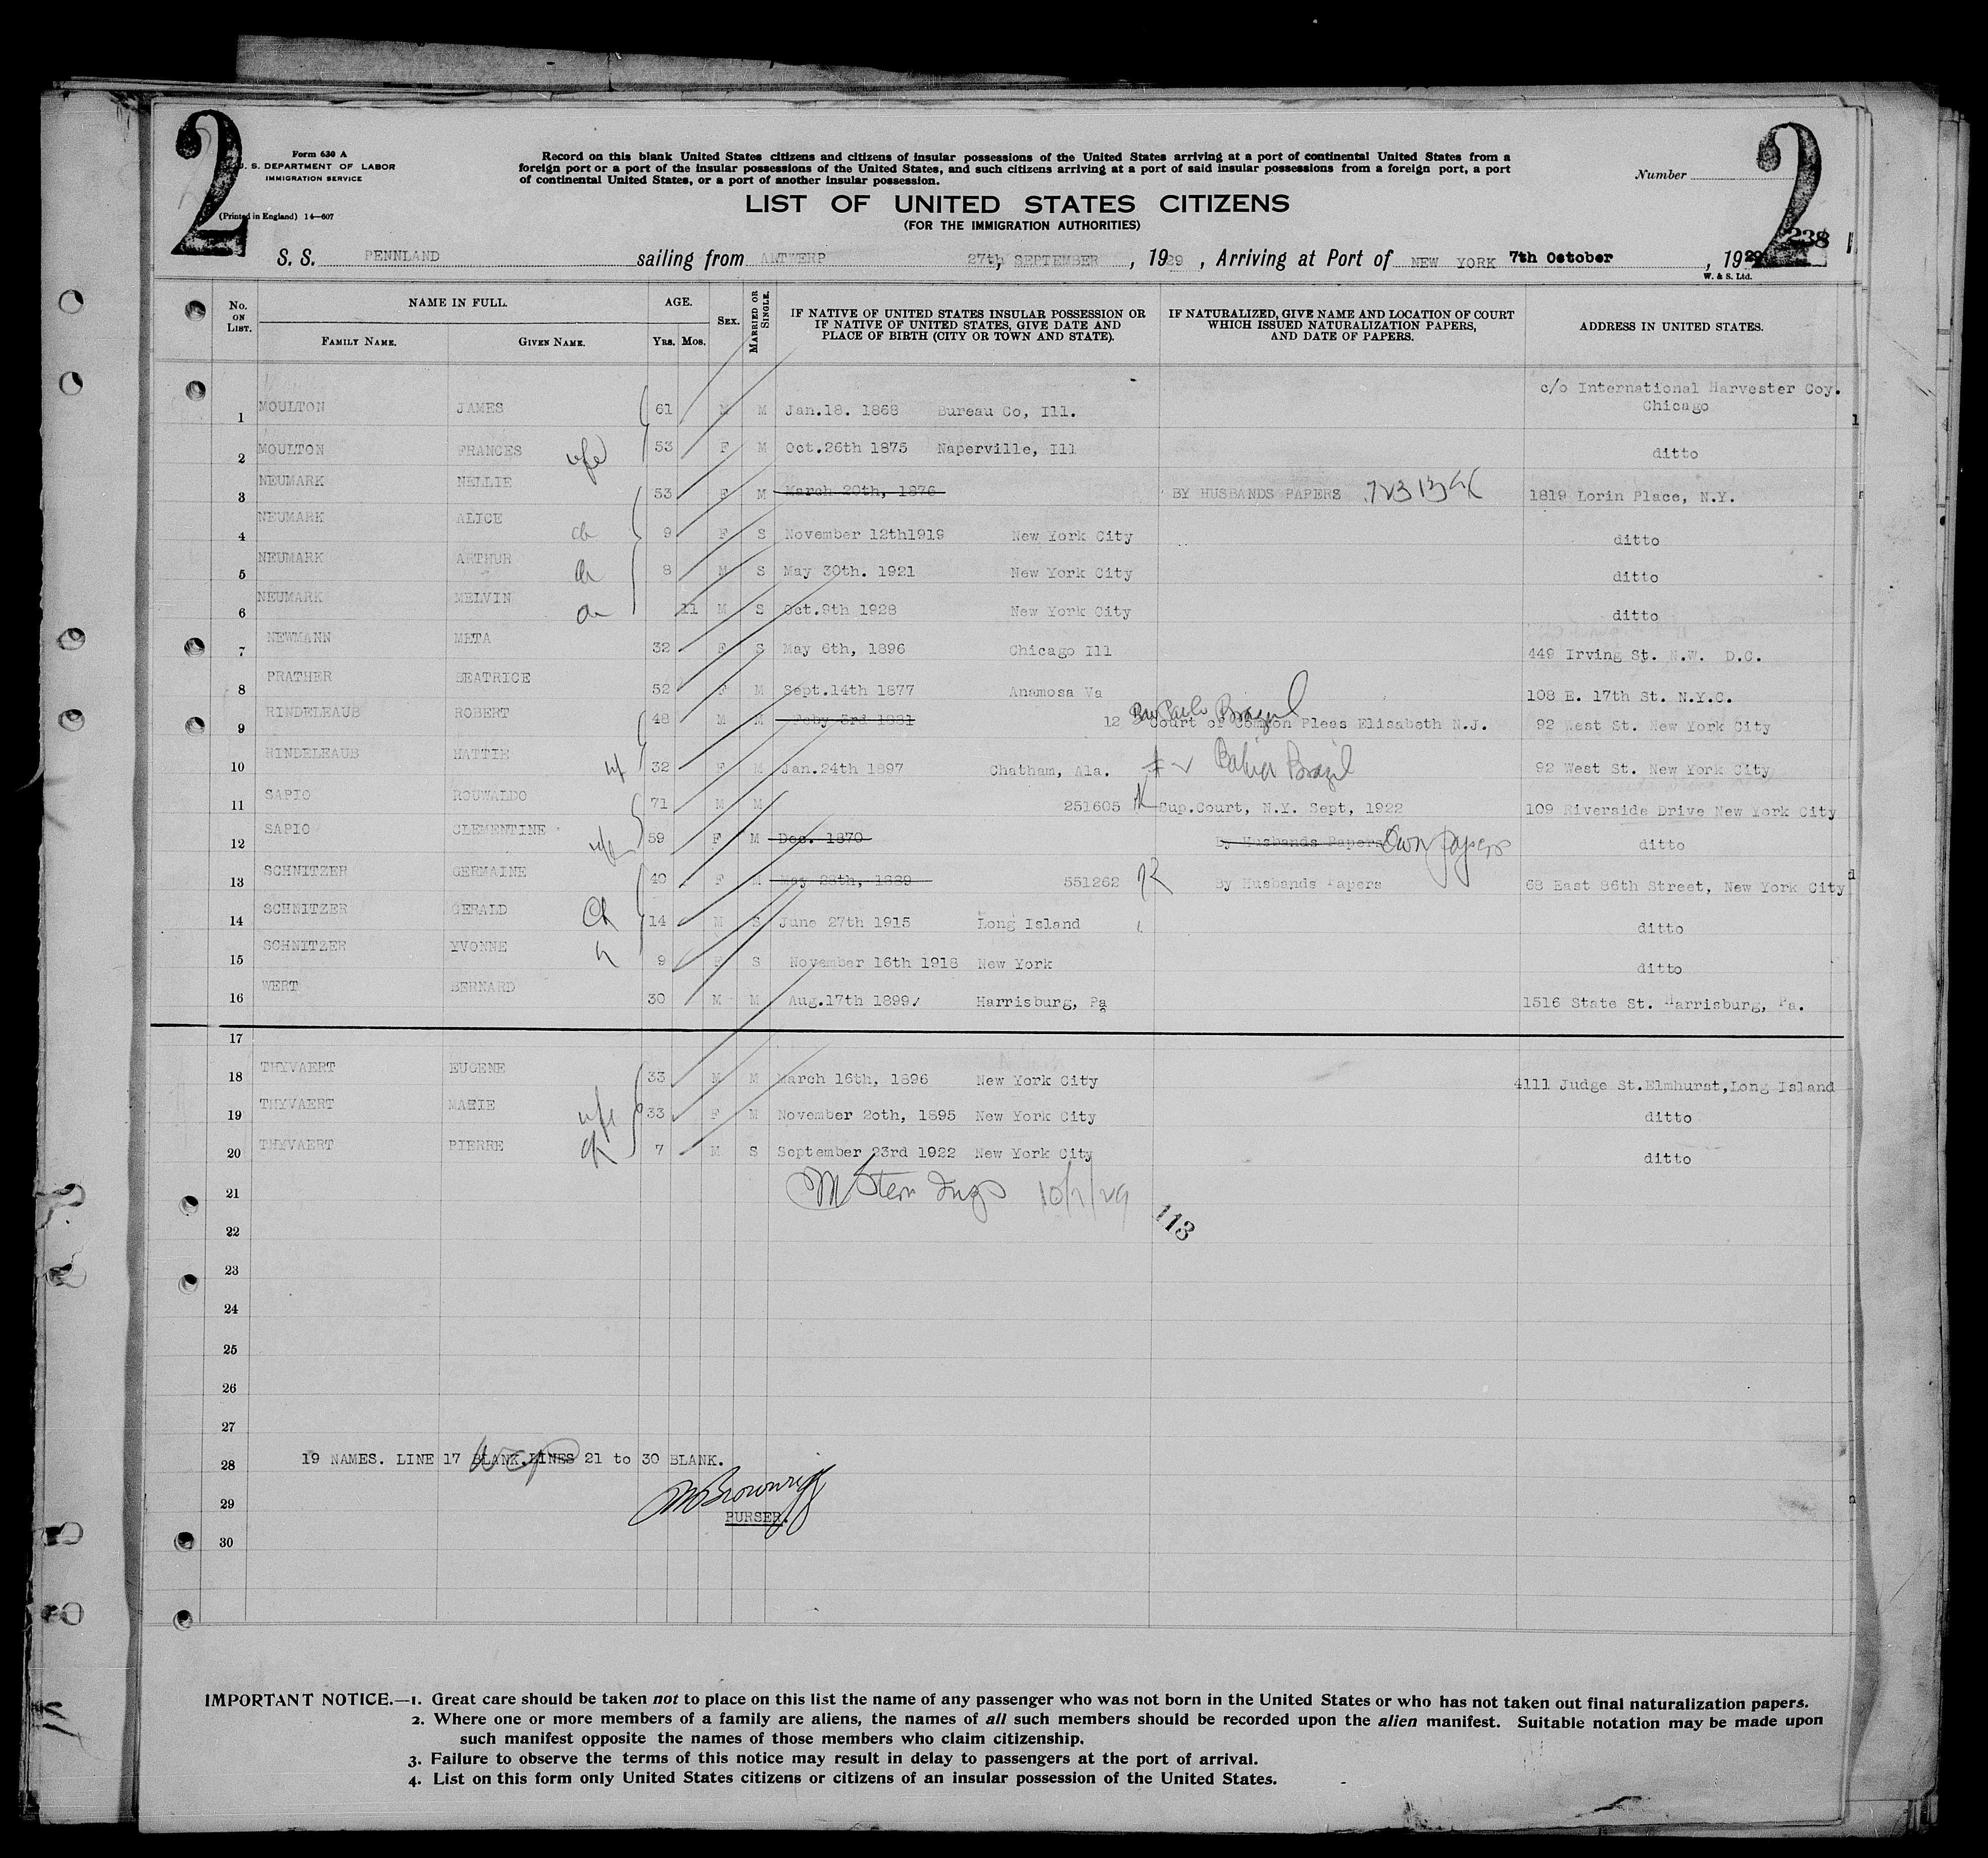 2
2
Form 630 A
U. S. DEPARTMENT OF LABOR
IMMIGRATION SERVICE
(Printed in England) 14—607
Record on this blank United States citizens and citizens of insular possessions of the United States arriving at a port of continental United States from a
foreign port or a port of the insular possessions of the United States, and such citizens arriving at a port of said insular possessions from a foreign port, a port
of continental United States, or a port of another insular possession.
Number
LIST OF UNITED STATES CITIZENS
(FOR THE IMMIGRATION AUTHORITIES)
238
S. S. PENNLAND sailing from ANTWERP 27th, SEPTEMBER, 1929, Arriving at Port of NEW YORK 7th October, 1929
W. & S. Ltd.
No. ON LIST. NAME IN FULL. FAMILY NAME. GIVEN NAME. AGE. YRS. MOS. SEX. MARRIED OR SINGLE. IF NATIVE OF UNITED STATES INSULAR POSSESSION OR IF NATIVE OF UNITED STATES, GIVE DATE AND PLACE OF BIRTH (CITY OR TOWN AND STATE). IF NATURALIZED, GIVE NAME AND LOCATION OF COURT WHICH ISSUED NATURALIZATION PAPERS, AND DATE OF PAPERS. ADDRESS IN UNITED STATES.
1 MOULTON JAMES 61 M M Jan.18. 1868 Bureau Co, Ill. c/o International Harvester Coy. Chicago
2 MOULTON FRANCES wfe 53 F M Oct.26th 1875 Naperville, Ill ditto
3 NEUMARK NELLIE 53 F M March 20th, 1876 BY HUSBANDS PAPERS 1819 Lorin Place, N.Y.
4 NEUMARK ALICE ch 9 F S November 12th1919 New York City ditto
5 NEUMARK ARTHUR ch 8 M S May 30th. 1921 New York City ditto
6 NEUMARK MELVIN ch 11 M S Oct.9th 1928 New York City ditto
7 NEWMANN META 32 F S May 6th, 1896 Chicago Ill 449 Irving St. N.W. D.C.
8 PRATHER BEATRICE 52 F M Sept.14th 1877 Anamosa Va 108 E. 17th St. N.Y.C.
9 RINDELEAUB ROBERT 48 M M Feby 3rd 1881 12 Sao Paulo Brazil Court of Common Pleas Elisabeth N.J. 92 West St. New York City
10 RINDELEAUB HATTIE wf 32 F M Jan.24th 1897 Chatham, Ala. Bahia Brazil 92 West St. New York City
11 SAPIO ROUWALDO 71 M M 251605 Sup.Court, N.Y. Sept, 1922 109 Riverside Drive New York City
12 SAPIO CLEMENTINE wfe 59 F M Dec. 1870 By Husbands Papers Own papers ditto
13 SCHNITZER GERMAINE 40 F M May 28th, 1889 551262 By Husbands Papers 68 East 86th Street, New York City
14 SCHNITZER GERALD Ch 14 M S June 27th 1915 Long Island ditto
15 SCHNITZER YVONNE 9 F S November 16th 1918 New York ditto
16 WERT BERNARD 30 M M Aug.17th 1899 Harrisburg, Pa 1516 State St. Harrisburg, Pa.
17
18 THYVAERT EUGENE 33 M M March 16th, 1896 New York City 4111 Judge St.Elmhurst,Long Island
19 THYVAERT MARIE wfe 33 F M November 2oth, 1895 New York City ditto
20 THYVAERT PIERRE ch 7 M S September 23rd 1922 New York City ditto
21 M Stern Insp 10/7/29
113
22
23
24
25
26
27
28 19 NAMES. LINE 17 BLANK.LINES 21 to 30 BLANK.
29
PURSER.
30
IMPORTANT NOTICE.—1. Great care should be taken not to place on this list the name of any passenger who was not born in the United States or who has not taken out final naturalization papers.
2. Where one or more members of a family are aliens, the names of all such members should be recorded upon the alien manifest. Suitable notation may be made upon
such manifest opposite the names of those members who claim citizenship.
3. Failure to observe the terms of this notice may result in delay to passengers at the port of arrival.
4. List on this form only United States citizens or citizens of an insular possession of the United States.